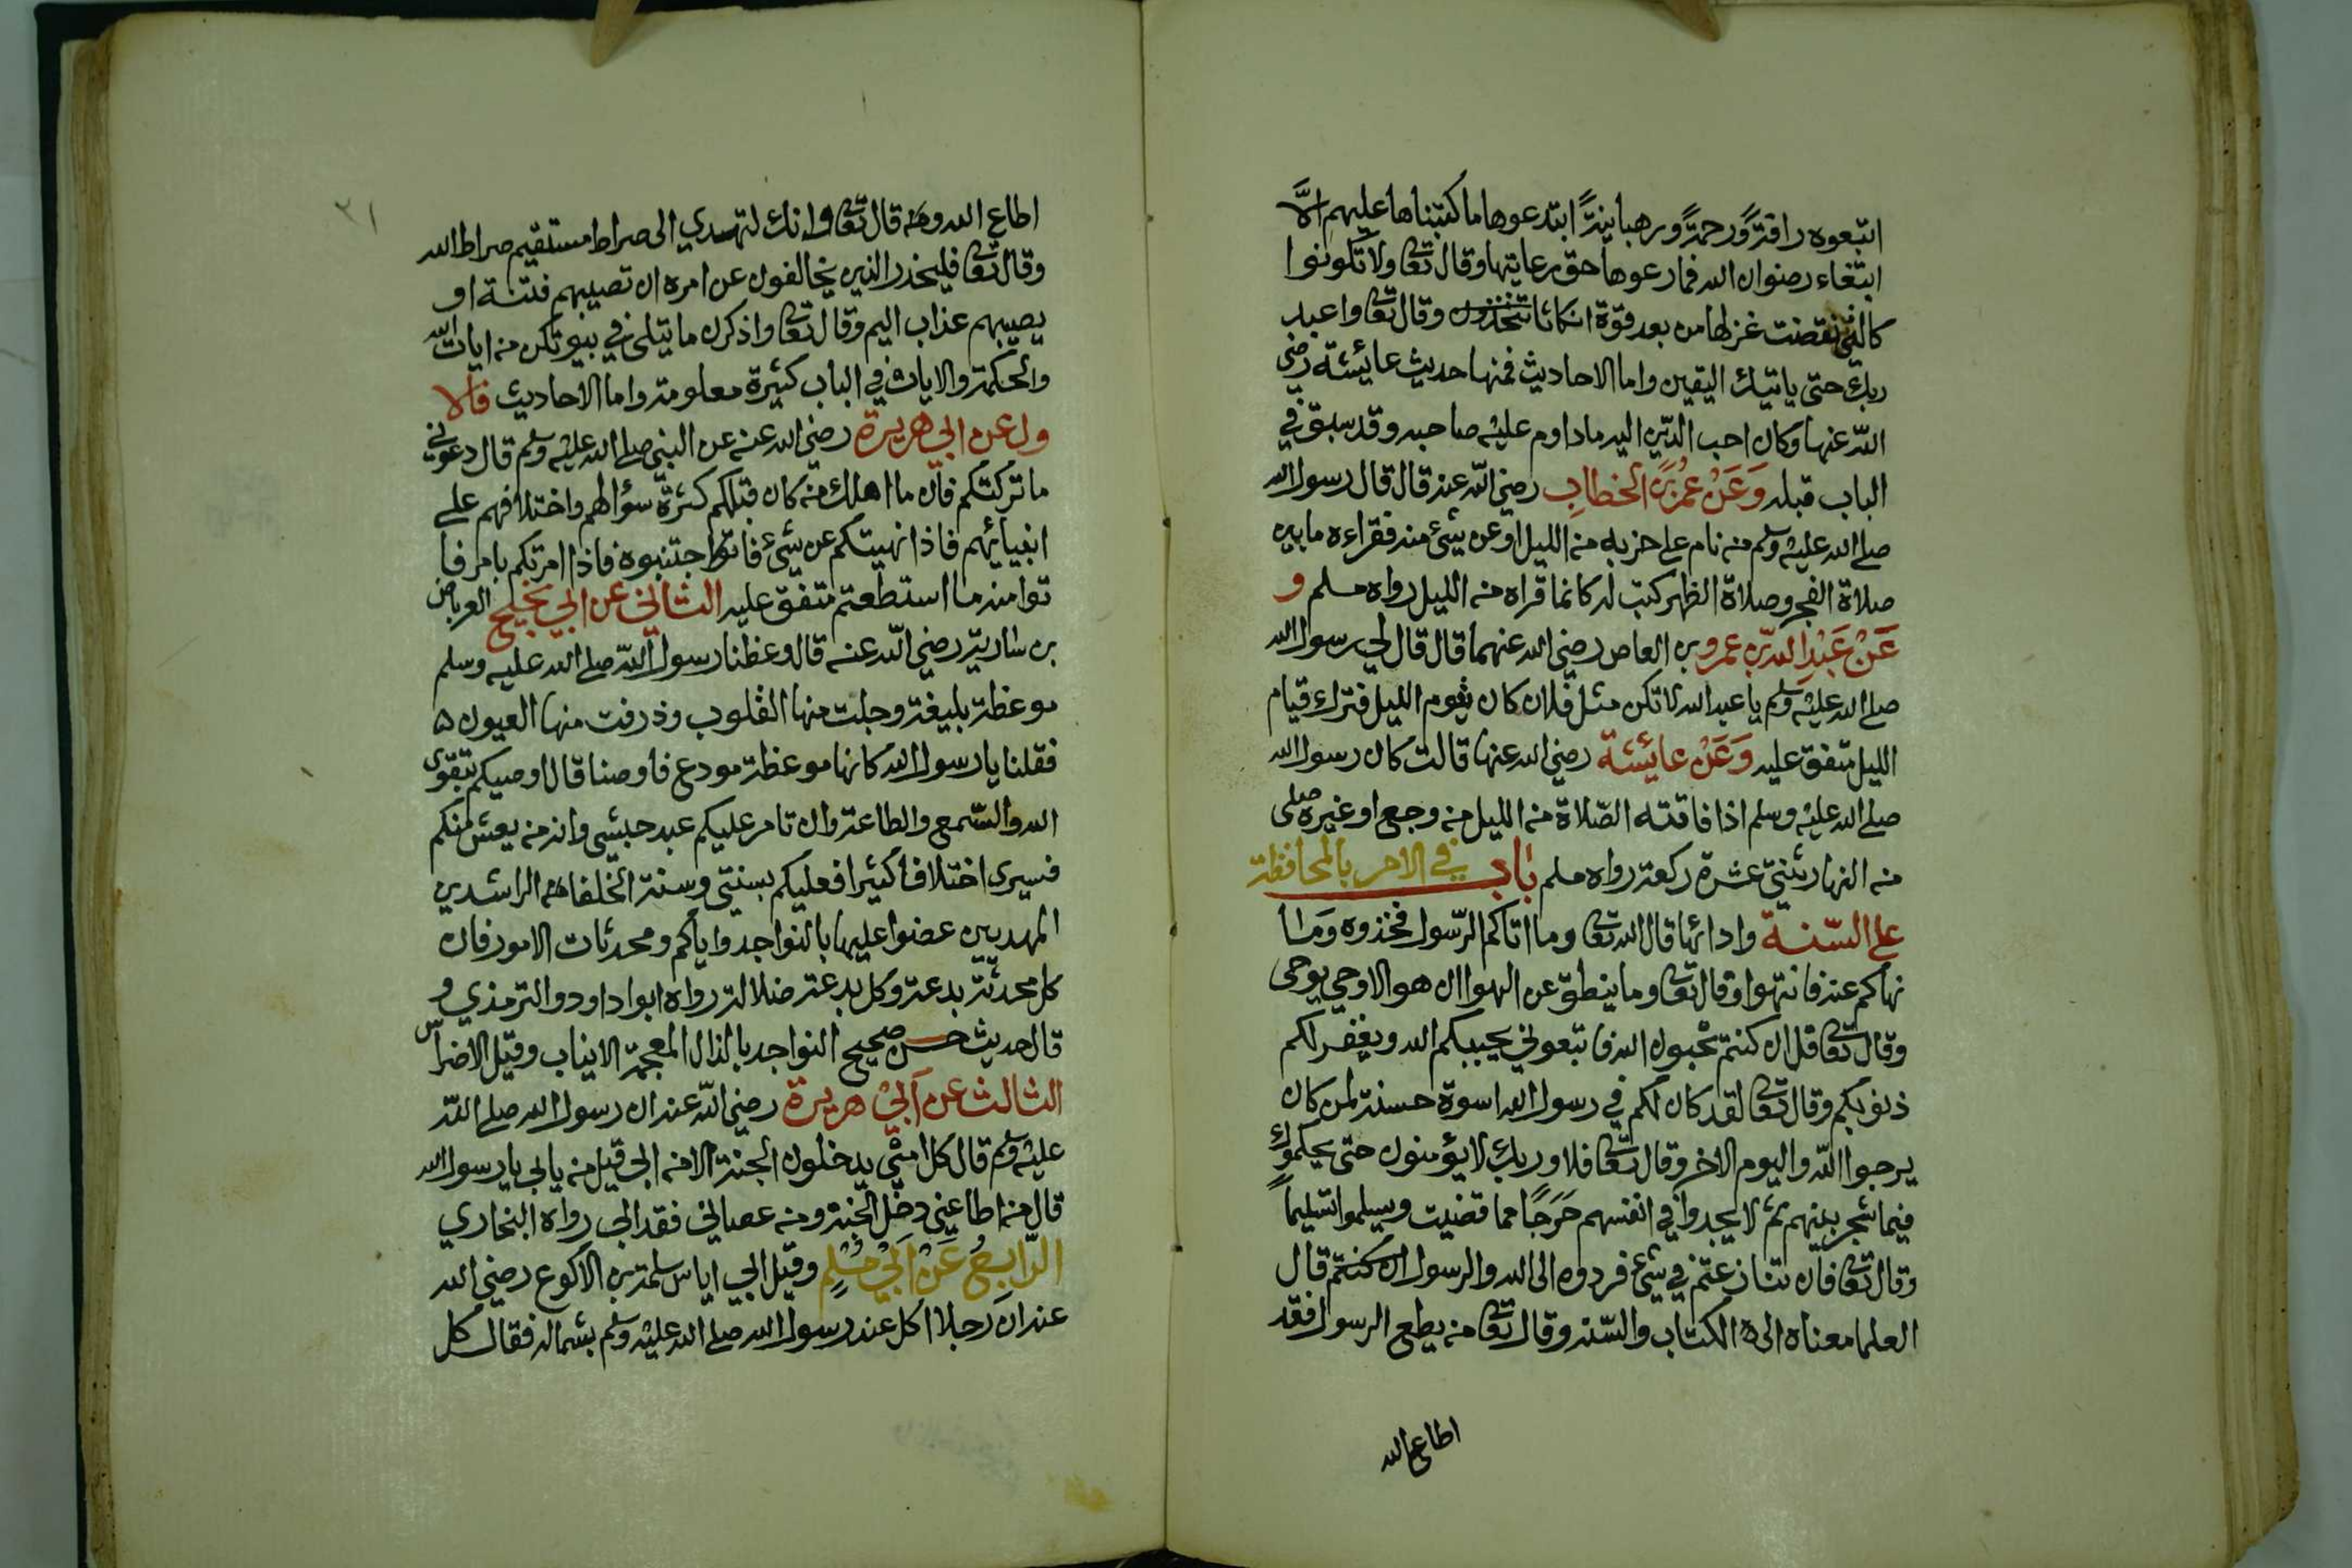 اتبعوه رافةً ورحمةً ورهبانيةً ابتدعوها ما كتبناها عليهم الَّا
ابتغاء رضوان الله فما رعوها حق رعايتها وقال تعا ولا تكونوا
كالتي نقضت غزلها من بعد قوّة انكاثا تتخذون وقال تعا واعبد
ربك حتى ياتيك اليقين واما الاحاديث فمنها حديث عايشة رضي
اللّه عنها وكان احب الدّين اليه ما داوم عليه صاحبه وقد سبق في
الباب قبله وَعَنْ عُمَرَبْنِ الخطابِ رضي الله عنه قال قال رسول الله
صلى الله عليه وسلم من نام على حزبه من الليل او عن شيئ منه فقراءه ما بين
صلاة الفجر وصلاة الظهر كتب له كانما قراه من الليل رواه مسلم و
عَنْ عَبْدِ اللّهِ بن عمرو بن العاص رضي الله عنهما قال قال لي رسول الله
صلى الله عليه وسلم يا عبد الله لا تكن مثل فلان كان يقوم الليل فترك قيام
الليل متفق عليه وَعَنْ عايشة رضي الله عنها قالت كان رسول الله
صلى الله عليه وسلم اذا فاتته الصّلاة من الليل من وجع او غيره صلى
من النهار ثنتي عشرة ركعة رواه مسلم باب في الامر بالمحافظة
على السّنة وادائها قال الله تعا وما اتاكم الرّسول فخذوه وَما
نهاكم عنه فانتهوا وقال تعا وما ينطق عن الهوا ان هو الا وحي يوحى
وقال تعا قل ان كنتم تحبون الله فاتبعوني يحببكم الله ويغفر لكم
ذنوبكم وقال تعا لقد كان لكم في رسول الله اسوة حسنة لمن كان
يرجوا اللّه واليوم الاخر وقال تعا فلا وربك لا يؤمنون حتى يحكموك
فيما شجر بينهم ثم لا يجدوا في انفسهم حَرَجًا مما قضيت ويسلموا تسليماً
وقال تعا فان تنازعتم في شيئ فردوه الى الله والرسول ان كنتم قال
العلما معناه الى الكتاب والسّنة وقال تعا من يطع الرسول فقد
اطاع الله
٢١
اطاع الله وقال تعا وانك لتهدي الى صراط مستقيم صراط الله
وقال تعا فليحذر الذين يخالفون عن امره ان تصيبهم فتنة او
يصيبهم عذاب اليم وقال تعا واذكرن ما يتلى في بيوتكن من ايات الله
والحكمة والايات في الباب كثيرة معلومة واما الاحاديث فالا
ول عن ابي هريرة رضي الله عنه عن النبي صلى الله عليه وسلم قال دعوني
ما تركتكم فان ما اهلك من كان قبلكم كثرة سؤالهم واختلافهم على
انبيائهم فاذا نهيتكم عن شيئ فاجتنبوه فاذا امرتكم بامر فا
توا منه ما استطعتم متفق عليه الثاني عن ابي نجيح العرباض
بن سارية رضي اللّه عنه قال وعظنا رسول اللّه صلى الله عليه وسلم
موعظة بليغة وجلت منها القلوب وذرفت منها العيون ه
فقلنا يا رسول الله كانها موعظة مودع فاوصنا قال اوصيكم بتقوى
الله والسّمع والطاعة وان تامر عليكم عبد حبشي وانه من يعش منكم
فسيرى اختلافا كثيرا فعليكم بسنتي وسنة الخلفا الراشدين
المهديين عضوا عليها بالنواجد واياكم ومحدثات الامور فان
كل محدثة بدعة وكل بدعة ضلالة رواه ابوا داود والترمذي و
قال حديث حسن صحيح النواجد بالذال المعجمة الانياب وقيل الاضراس
الثالث عن اَبي هريرة رضي اللّه عنه ان رسول الله صلى اللّه
عليه وسلم قال كل امتي يدخلون الجنة الا من ابى قيل من يابى يا رسول الله
قال من اطاعني دخل الجنة ومن عصاني فقد ابى رواه البخاري
الرّابعُ عَنْ اَبِي مُسْلِمٍ وقيل ابي اياس سلمة بن الاكوع رضي الله
عنه ان رجلا اكل عند رسول الله صلى الله عليه وسلم بشماله فقال كل